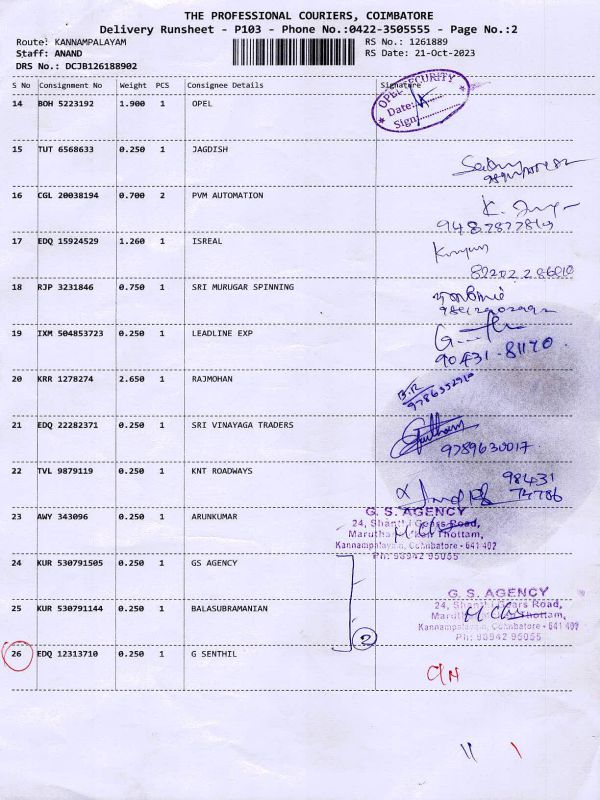 THE PROFESSIONAL COURIERS, COIMBATORE
Delivery Runsheet - P103 - Phone No.:0422-3505555 - Page No.:2
Route: KANNAMPALAYAM RS No.: 1261889
Staff: ANAND RS Date: 21-Oct-2023
DRS No.: DCJB126188902
S No Consignment No Weight PCS Consignee Details Signature
14 BOH 5223192 1.900 1 OPEL
OPEL SECURITY
Date:
Sign:
15 TUT 6568633 0.250 1 JAGDISH
16 CGL 20038194 0.700 2 PVM AUTOMATION
17 EDQ 15924529 1.260 1 ISREAL
18 RJP 3231846 0.750 1 SRI MURUGAR SPINNING
19 IXM 504853723 0.250 1 LEADLINE EXP
90431-81170
20 KRR 1278274 2.650 1 RAJMOHAN
21 EDQ 22282371 0.250 1 SRI VINAYAGA TRADERS
Gautham
9789630017
22 TVL 9879119 0.250 1 KNT ROADWAYS
98431
74786
23 AWY 343096 0.250 1 ARUNKUMAR
G. S. AGENCY
24, Shanthi Gears Road,
Thottam,
Kannampalayam, Coimbatore - 641 402
Ph: 98942 95055
24 KUR 530791505 0.250 1 GS AGENCY
25 KUR 530791144 0.250 1 BALASUBRAMANIAN
G. S. AGENCY
24, Shanthi Gears Road,
Thottam,
Kannampalayam, Coimbatore - 641 402
Ph: 98942 95055
2
26 EDQ 12313710 0.250 1 G SENTHIL